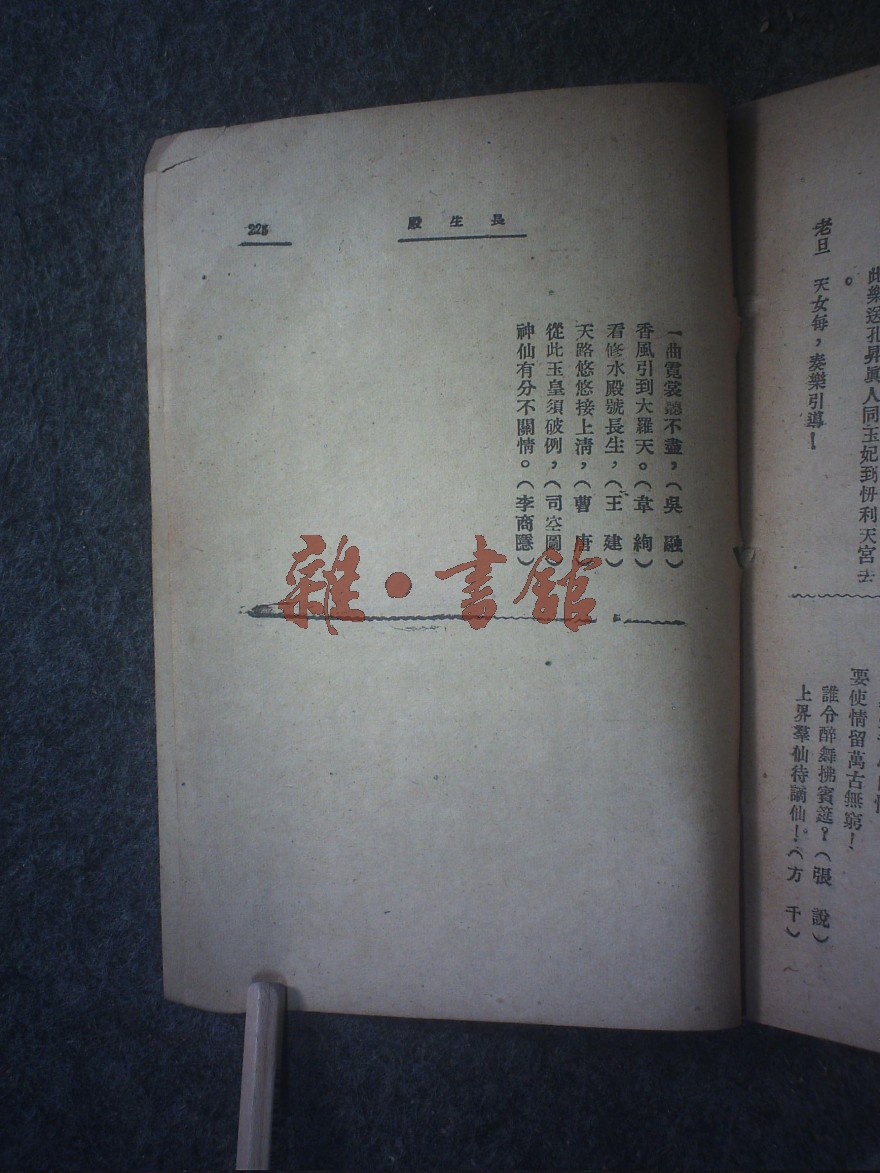 此樂送孔昇眞人同玉妃到忉利天宮去
。
老旦　天女每，奏樂引導！
要使情留萬古無窮！
誰令醉舞拂賓筵？（張　說）
上界羣仙待謫仙！（方　干）
225
長生殿
一曲霓裳聽不盡，（吳　融）
香風引到大羅天。（韋　絢）
看修水殿號長生，（王　建）
天路悠悠接上淸，（曹　唐）
從此玉皇須破例，（司空圖）
神仙有分不關情。（李商隱）
雜·書館